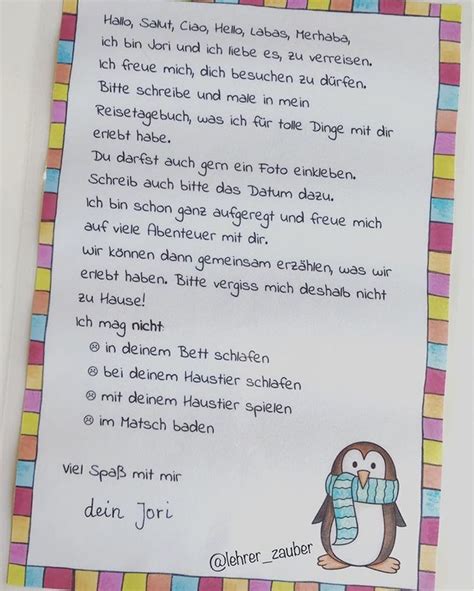 Hallo, Salut, Ciao, Hello, Labas, Merhaba,
ich bin Jori und ich liebe es, zu verreisen.
Ich freue mich, dich besuchen zu dürfen.
Bitte schreibe und male in mein
Reisetagebuch, was ich für tolle Dinge mit dir
erlebt habe.
Du darfst auch gern ein Foto einkleben.
Schreib auch bitte das Datum dazu.
Ich bin schon ganz aufgeregt und freue mich
auf viele Abenteuer mit dir.
Wir können dann gemeinsam erzählen, was wir
erlebt haben. Bitte vergiss mich deshalb nicht
zu Hause!
Ich mag nicht:
☹ in deinem Bett schlafen
☹ bei deinem Haustier schlafen
☹ mit deinem Haustier spielen
☹ im Matsch baden
Viel Spaß mit mir
dein Jori
@lehrer_zauber